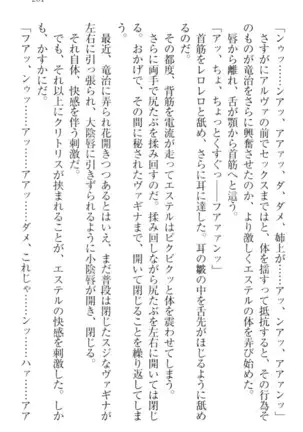 「ンゥッ……ンアッ、アアァッ、ダ、ダメ、姉上が……アァッ、ンアッ、アアァンッ」
さすがにアルヴァの前でセックスまではできないと、体を揺すって抵抗すると、その行為そ
のものが竜治をさらに興奮させたのか、より激しくエステルの体を弄び始めた。
唇から離れ、舌が顎から首筋へと這う。
「フアッ、ちょ、ちょっとくすぐっ――フアァァンッ」
首筋をレロレロと舐め、さらに耳に達した。耳の皺の中を舌先がほじるように舐め
るのだ。
その都度、背筋を電流が走ってエステルはビクビクッと体を震わせてしまう。
さらに両手で尻たぶを揉み回すのだ。揉み回しながら尻たぶを左右に開いては閉じ
る。おかげで、その間に秘されたヴァギナまで、開いて閉じることを繰り返してしま
う。
最近、竜治に弄られ花開きつつあるとはいえ、まだ普段は閉じたスジなヴァギナが
左右に引っ張られ、大陰唇に引きずられるように小陰唇が開き、閉じる。
それ自体、快感を伴う刺激だ。
でも、それ以上にクリトリスが挟まれることが、エステルの快感を刺激した。しか
「フアッ、ンゥッ……アアッ……アアァッ……ダメ、これじゃ……ンッ……ハァ……アア